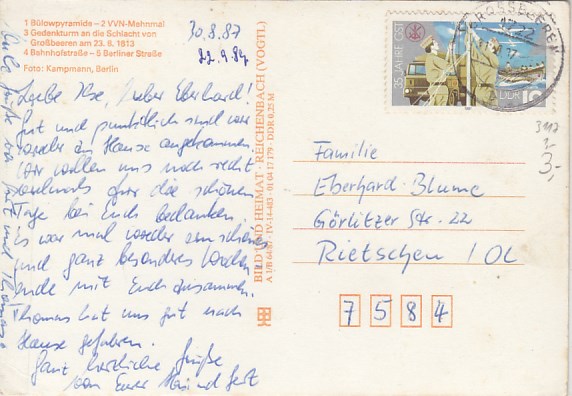 1 Bülowpyramide – 2 VVN-Mahnmal
3 Gedenkturm an die Schlacht von
Großbeeren am 23. 8. 1813
4 Bahnhofstraße – 5 Berliner Straße
Foto: Kampmann, Berlin
30.8.87
22.9.87
Liebe Ilse, lieber Eberhard!
Gut und pünktlich sind wir
wieder zu Hause angekommen.
Wir wollen uns noch recht
vielmals für die schönen
Tage bei Euch bedanken.
Es war mal wieder ein schönes
und ganz besonderes Wochen
ende mit Euch zusammen.
Thomas hat uns gut nach
Hause gefahren.
Ganz herzliche Grüße
von Euer
Grüße von
und Thomas
BILD UND HEIMAT · REICHENBACH (VOGTL)
IV-14-483 · 01 04 17 179 · DDR 0,25 M
35 JAHRE GST
DDR
10
GROSSBEEREN
3,-
Familie
Eberhard Blume
Görlitzer Str. 22
Rietschen / OL
7 5 8 4